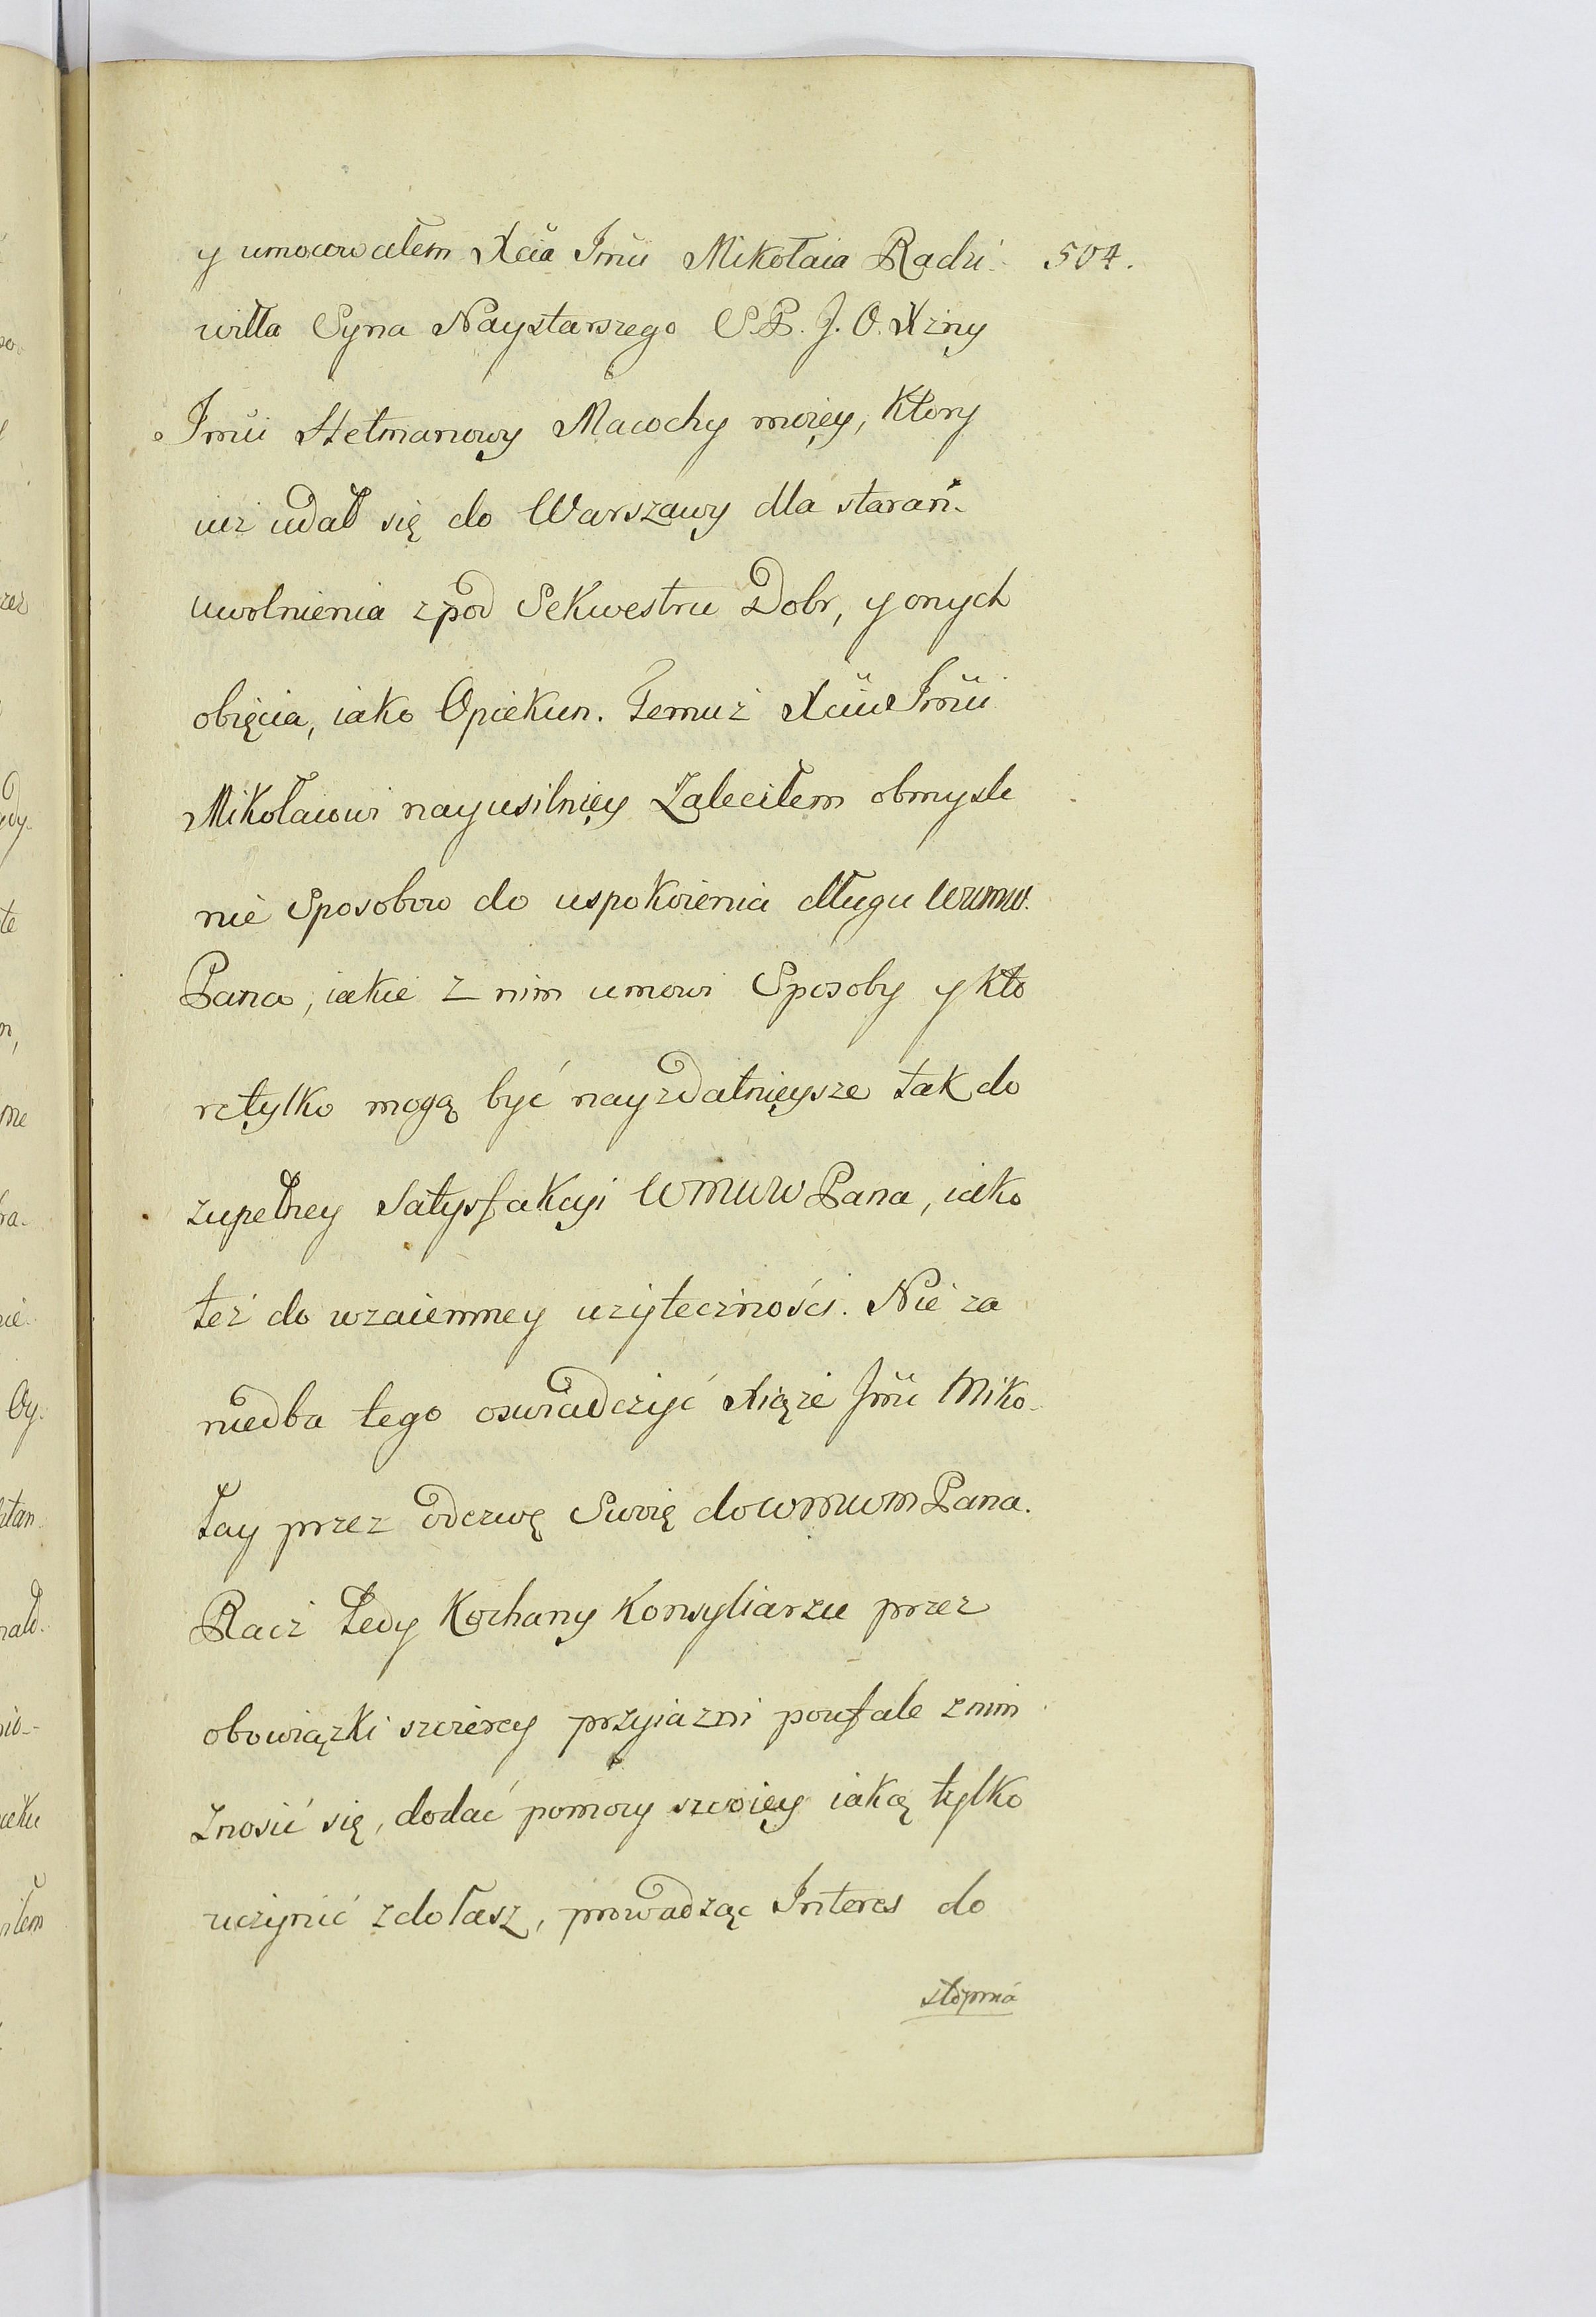 y umocowałem Xcia Jmci Mikołaia Radzi- 504.
wiłła Syna Naystarszego S.P. J. O. Xzny
Jmci Hetmanowy Macochy moięy, ktory
iuż udał się do Warszawy dla starań
uwolnienia zpod Sekwestru Dobr, y onych
obięcia, iako Opiekun. Temuż Xciu Jmci
Mikołaiowi nayusilnięy Zaleciłem obmysle
nie Sposobow do uspokoienia długu WMW.
Pana, iakie z nim umowi Sposoby y kto
retylko mogą być nayzdatnięysze tak do
zupełney Satysfakcyi WMWW Pana, iako
też do wzaiemney użyteczności. Nie za
niedba tego oswiadczyć Xiąże Jmć Miko-
łay przez odezwę Swoię do WMWM Pana.
Racz tedy Kochany Konsyliarzu przez
obowiązki szczerey przyiazni poufale z nim
Znosić się, dodać pomocy swoięy iaką tylko
uczynić zdołasz, prowadząc Interes do
stopnia